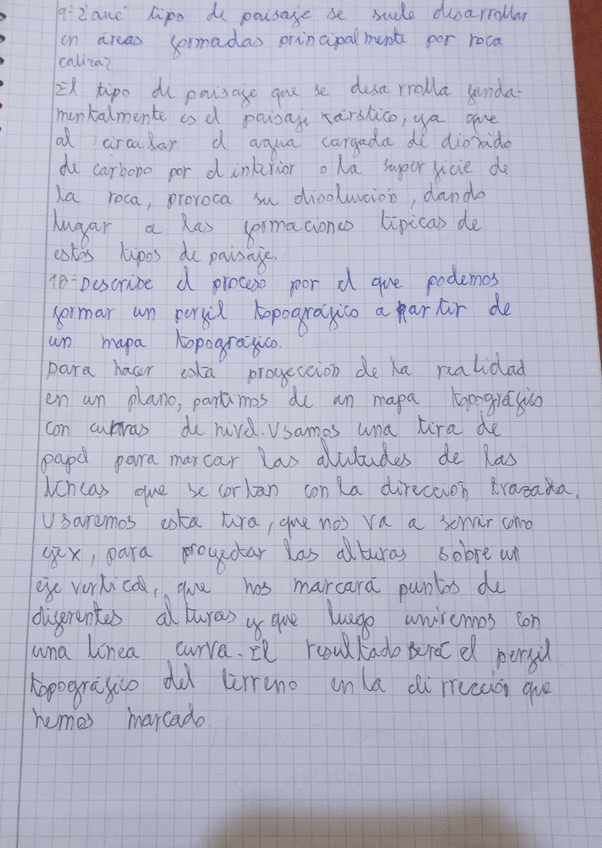 9-¿Qué tipo de paisaje se suele desarrollar
en áreas formadas principalmente por roca
caliza?
El tipo de paisaje que se desarrolla funda-
mentalmente es el paisaje kárstico, ya que
al circular el agua cargada de dioxido
de carbono por el interior o la superficie de
la roca, provoca su disolución, dando
lugar a las formaciones típicas de
estos tipos de paisaje.
10-Describe el proceso por el que podemos
formar un perfil topográfico a partir de
un mapa topográfico.
para hacer esta proyección de la realidad
en un plano, partimos de un mapa topográfico
con curvas de nivel. Usamos una tira de
papel para marcar las altitudes de las
líneas que se cortan con la dirección trazada.
Usaremos esta tira, que nos va a servir como
eje x, para proyectar las alturas sobre un
eje vertical, que nos marcará puntos de
diferentes alturas y que luego uniremos con
una línea curva. El resultado será el perfil
topográfico del terreno en la dirrección que
hemos marcado